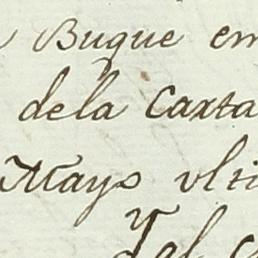 Buque em
dela Carta
Mayo ulti
y